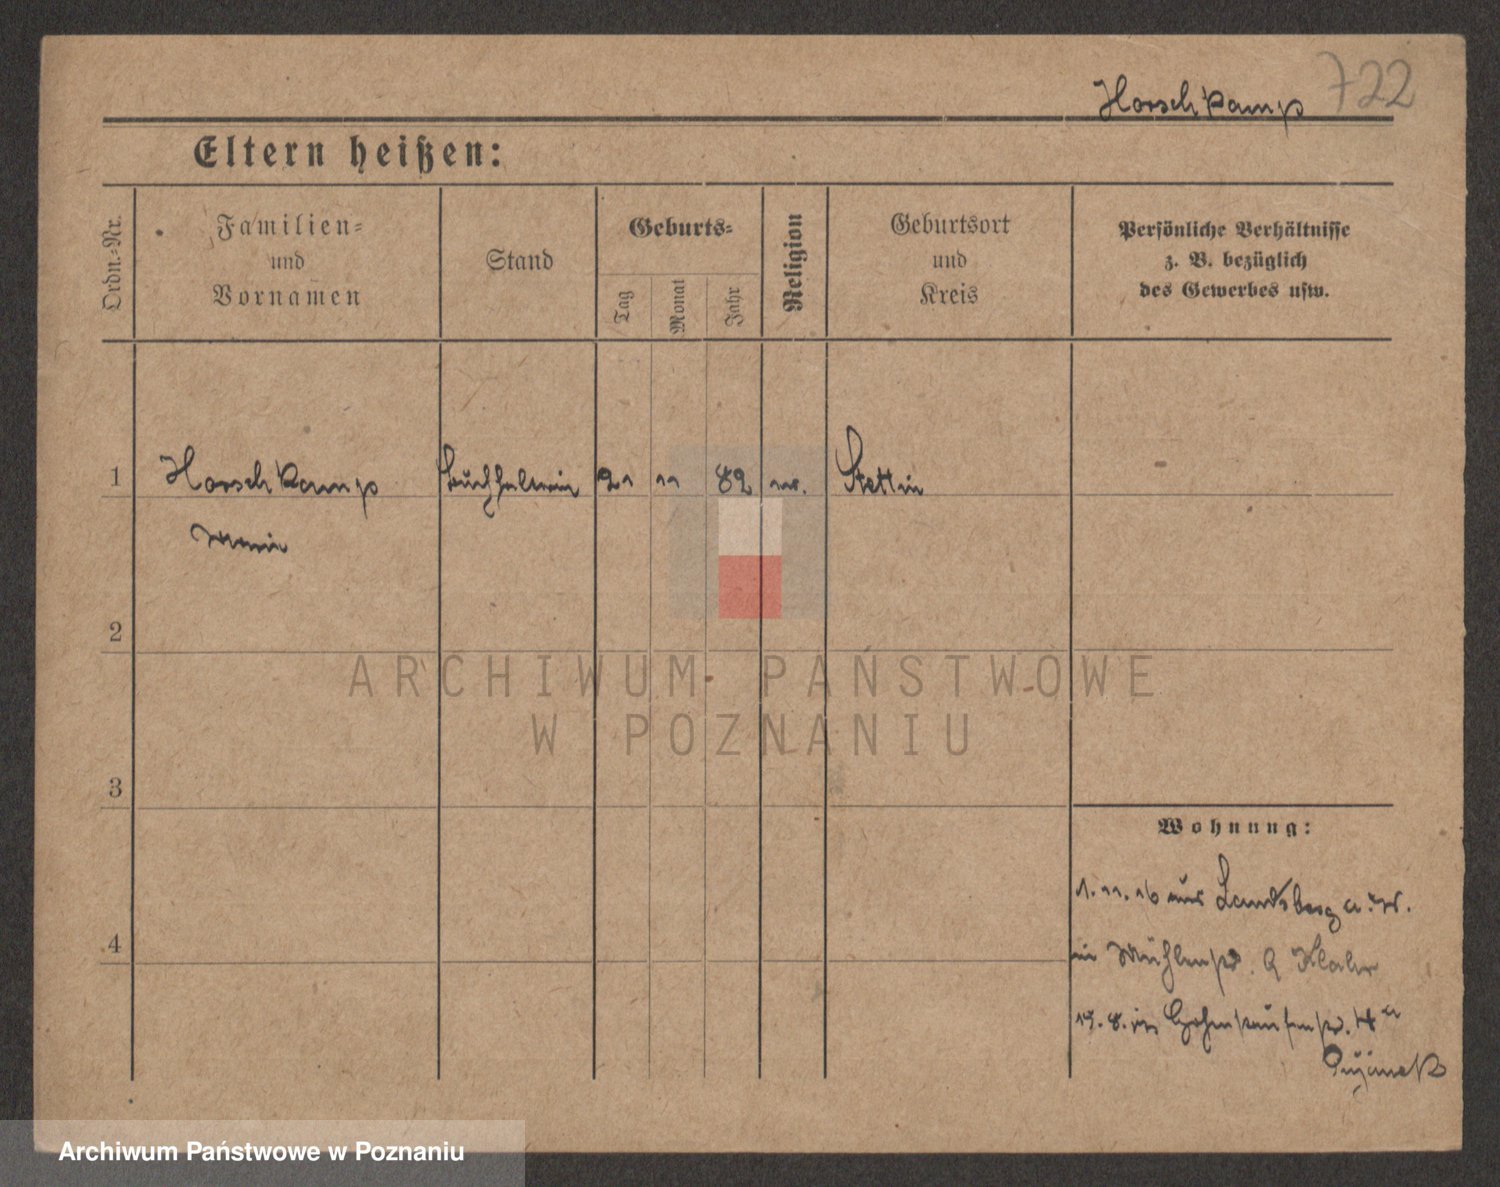 Horschkamp 722
Eltern heißen:
Ordn.-Nr.
Familien-
und
Vornamen
Stand
Geburts-
Tag
Monat
Jahr
Religion
Geburtsort
und
Kreis
Persönliche Verhältnisse
z. B. bezüglich
des Gewerbes usw.
1 Horschkamp Buchhalterin 21 11 82 Stettin
2
3
Wohnung:
1.11.16 aus Landsberg a. W.
4
in Mühlenstr. 9
in Hohenstaufenstr.
ARCHIWUM PAŃSTWOWE
W POZNANIU
Archiwum Państwowe w Poznaniu